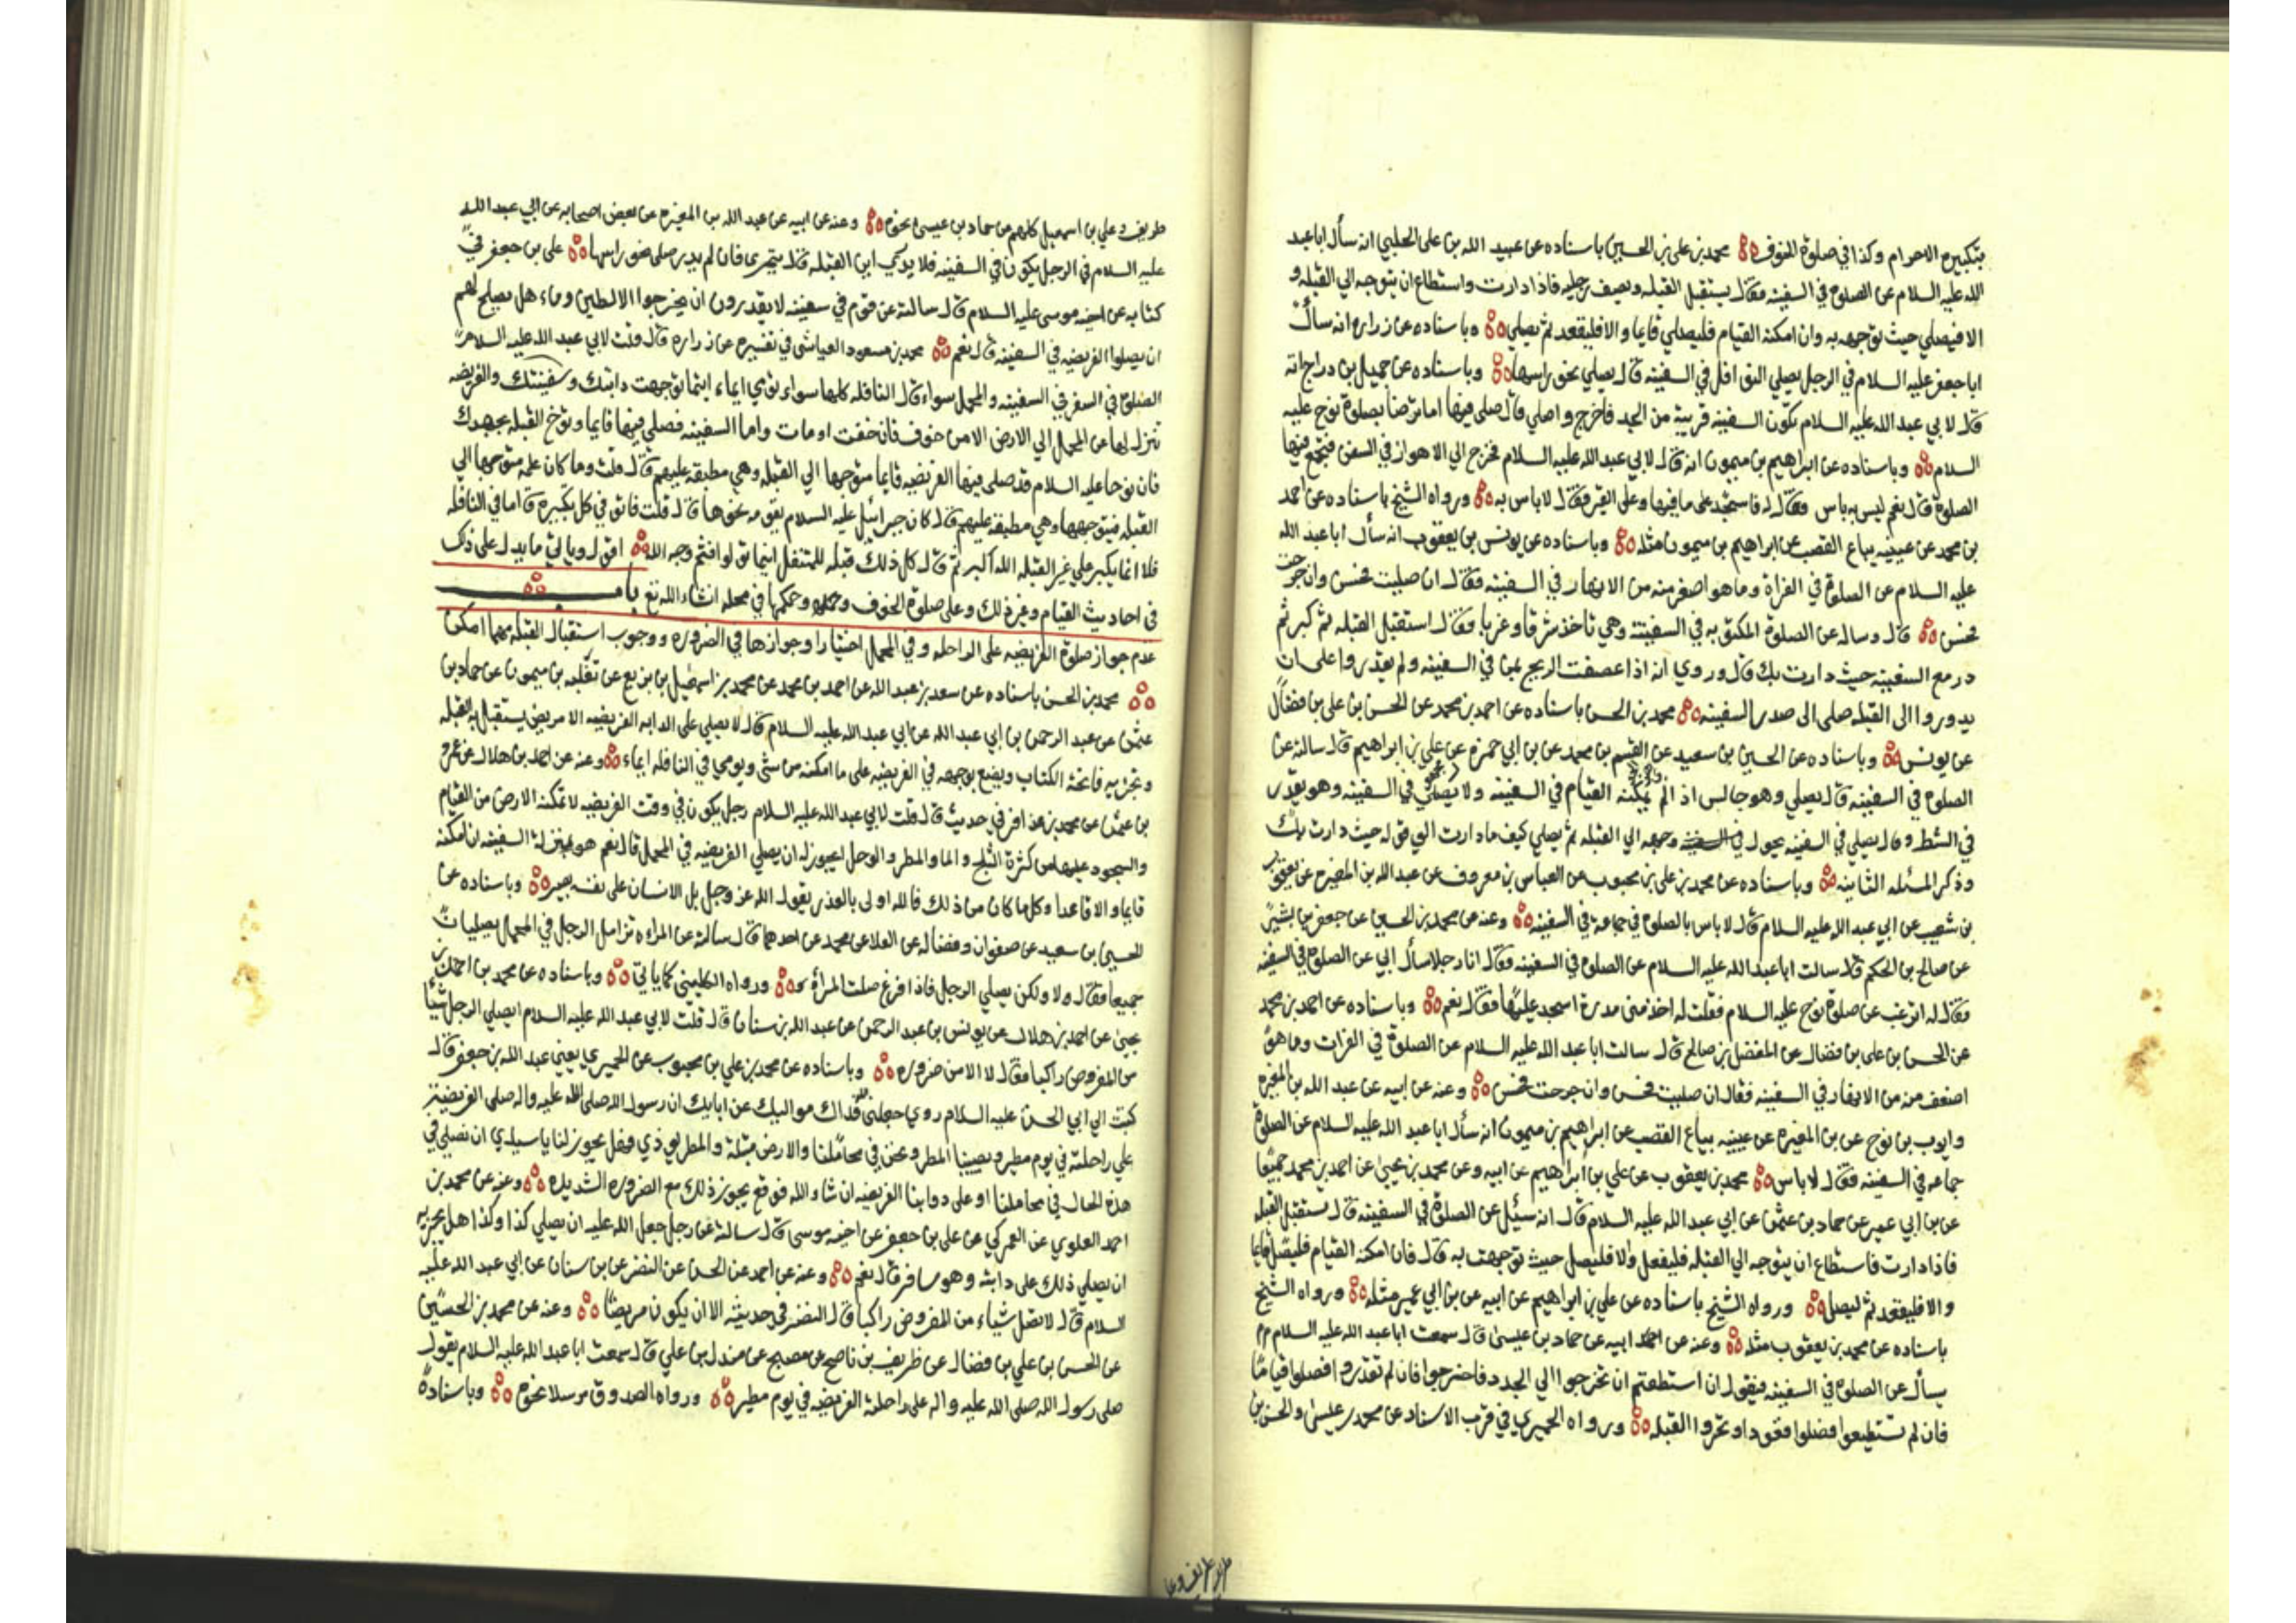 بتكبيرة الاحرام وكذا في صلوة الخوف محمد بن علي بن الحسين باسناده عن عبيد الله بن علي الحلبي انه سأل اباعبد
الله عليه السلام عن الصلوة في السفينه فقال يستقبل القبله ويصف رجليه فاذا دارت واستطاع ان يتوجه الي القبله و
الا فيصلي حيث توجهت به وان امكنه القيام فليصلي قايما والا فليقعد ثم يصلي وباسناده عن زراره انه سأل
اباجعفر عليه السلام في الرجل يصلي النوافل في السفينه قال يصلي نحو راسها وباسناده عن جميل بن دراج انه
قال لابي عبد الله عليه السلام تكون السفينه قريبة من الجد فاخرج واصلي قال صلي فيها اما ترضا بصلوة نوح عليه
السلام وباسناده عن ابراهيم بن ميمون انه قال لابي عبد الله عليه السلام نخرج الي الاهواز في السفن فنجمع فيها
الصلوة قال نعم ليس به باس فقال له فاسجد على ما فيها وعلى القير فقال لا باس به ورواه الشيخ باسناده عن احمد
بن محمد عن عيينه بياع القصب عن ابراهيم بن ميمون مثله وباسناده عن يونس بن يعقوب انه سأل اباعبد الله
عليه السلام عن الصلوة في الفراة وما هو اصغر منه من الانهار في السفينه فقال ان صليت فحسن وان خرجت
فحسن قال وساله عن الصلوة المكتوبه في السفينة وهي تاخذ شرقا وغربا فقال استقبل القبله ثم كبر ثم
در مع السفينه حيث دارت بك قال وروي انه اذا عصفت الريح بمن في السفينه ولم يقدروا على ان
يدوروا الى القبله صلى الى صدر السفينه محمد بن الحسن باسناده عن احمد بن محمد عن الحسن بن علي بن فضال
عن يونس وباسناده عن الحسين بن سعيد عن القسم بن محمد عن بن ابي حمزه عن علي بن ابراهيم قال سالته عن
الصلوة في السفينه قال يصلي وهو جالس اذا لم يمكنه القيام في السفينه ولا يصلي في السفينه وهو يقدر
في الشط وقال يصلي في السفينه يحول وجهه الي القبله ثم يصلي كيف ما دارت الي قوله حيث دارت بك
وذكر المسئله الثانيه وباسناده عن محمد بن علي بن محبوب عن العباس بن معروف عن عبد الله بن المغيره عن يعقوب
بن شعيب عن ابي عبد الله عليه السلام قال لا باس بالصلوة في جماعة في السفينه وعنه عن محمد بن الحسين عن جعفر بن بشير
عن صالح بن الحكم قال سالت اباعبد الله عليه السلام عن الصلوة في السفينه فقال ان رجلا سأل ابي عن الصلوة في السفينه
فقال له اترغب عن صلوة نوح عليه السلام فقلت له اخذ معي مدرة اسجد عليها فقال نعم وباسناده عن احمد بن محمد
عن الحسن بن علي بن فضال عن المفضل بن صالح قال سالت ابا عبد الله عليه السلام عن الصلوة في الفرات وما هو
اضعف منه من الانهار في السفينه فقال ان صليت فحسن وان خرجت فحسن وعنه عن ابيه عن عبد الله بن المغيره
وايوب بن نوح عن بن المغيره عن عيينه بياع القصب عن ابراهيم بن ميمون انه سأل ابا عبد الله عليه السلام عن الصلوة
جماعه في السفينه فقال لا باس محمد بن يعقوب عن علي بن ابراهيم عن ابيه وعن محمد بن يحيى عن احمد بن محمد جميعا
عن بن ابي عمير عن حماد بن عثمن عن ابي عبد الله عليه السلام قال انه سئل عن الصلوة في السفينه قال يستقبل القبله
فاذا دارت فاستطاع ان يتوجه الي القبله فليفعل والا فليصل حيث توجهت به قال فان امكنه القيام فليصل قايما
والا فليقعد ثم ليصل ورواه الشيخ باسناده عن علي بن ابراهيم عن ابيه عن بن ابي عمير مثله ورواه الشيخ
باسناده عن محمد بن يعقوب مثله وعنه عن ابيه عن حماد بن عيسى قال سمعت اباعبد الله عليه السلام
يسأل عن الصلوة في السفينه فيقول ان استطعتم ان تخرجوا الي الجدد فاخرجوا فان لم تقدروا فصلوا قياما
فان لم تستطيعوا فصلوا قعودا وتحروا القبله ورواه الحميري في قرب الاسناد عن محمد بن عيسى والحسن بن
طريف وعلي
طريف وعلي بن اسمعيل كلهم عن حماد بن عيسى نحوه وعنه عن ابيه عن عبد الله بن المغيره عن بعض اصحابه عن ابي عبد الله
عليه السلام في الرجل يكون في السفينه فلا يدري اين القبله قال يتحرى فان لم يدر صلى نحو راسها علي بن جعفر في
كتابه عن اخيه موسى عليه السلام قال سالته عن قوم في سفينه لا يقدرون ان يخرجوا الا لطين وماء هل يصلح لهم
ان يصلوا الفريضه في السفينه قال نعم محمد بن مسعود العياشي في تفسيره عن زراره قال قلت لابي عبد الله عليه السلام
الصلوة في السفر في السفينه والمحمل سواء قال النافله كلها سواء تومي ايماء اينما توجهت دابتك وسفينتك والفريضه
تنزل لها عن المحمل الي الارض الا من خوف فان خفت اومات واما السفينه فصلي فيها قايما وتوخ القبله بجهدك
فان نوحا عليه السلام قد صلى فيها الفريضه قايما متوجها الي القبله وهي مطبقه عليهم قال قلت وما كان علمه متوجها الي
القبله فيتوجهها وهي مطبقه عليهم قال كان جبرائيل عليه السلام يقومه نحوها قال قلت فاتوجه في كل تكبيرة قال اما في النافله
فلا انما يكبر على غير القبله الله اكبر ثم قال كل ذلك قبله للمتنفل اينما تولوا فثم وجه الله اقول وياتي ما يدل على ذلك
في احاديث القيام وغير ذلك وعلى صلوة الخوف وحكمها في محله انشاء الله تع باب
عدم جواز صلوة الفريضه على الراحله وفي المحمل اختيارا وجوازها في الضروره ووجوب استقبال القبله مهما امكن
محمد بن الحسن باسناده عن سعد بن عبد الله عن احمد بن محمد عن محمد بن اسمعيل بن بزيع عن ثعلبه بن ميمون عن حماد بن
عثمن عن عبد الرحمن بن ابي عبد الله عن ابي عبد الله عليه السلام قال لا يصلي على الدابه الفريضه الا مريض يستقبل به القبله
وتجزيه فاتحة الكتاب ويضع بوجهه في الفريضه على ما امكنه من شي ويومي في النافله ايماء وعنه عن احمد بن هلال عن عمرو
بن عثمن عن محمد بن عذافر في حديث قال قلت لابي عبد الله عليه السلام رجل يكون في وقت الفريضه لا تمكنه الارض من القيام
والسجود عليها من كثرة الثلج والما والمطر والوحل ايجوز له ان يصلي الفريضه في المحمل قال نعم هو بمنزلة السفينه ان امكنه
قايما والا قاعدا وكل ما كان من ذلك فالله اولى بالعذر يقول الله عز وجل بل الانسان على نفسه بصيره وباسناده عن
الحسين بن سعيد عن صفوان وفضاله عن العلا عن محمد عن احدهما قال سالته عن المراه تزامل الرجل في المحمل يصليان
جميعا فقال ولا ولكن يصلي الرجل فاذا فرغ صلت المرأة ورواه الكليني كما ياتي وباسناده عن محمد بن احمد بن
يحيى عن احمد بن هلال عن يونس بن عبد الرحمن عن عبد الله بن سنان قال قلت لابي عبد الله عليه السلام ايصلي الرجل شيئا
من المفروض راكبا فقال لا الا من ضروره وباسناده عن محمد بن علي بن محبوب عن الحميري يعني عبد الله بن جعفر قال
كتبت الي ابي الحسن عليه السلام روي جعلني الله فداك مواليك عن ابايك ان رسول الله صلى الله عليه واله صلى الفريضة
علي راحلته في يوم مطير ويصيبنا المطر ونحن في محاملنا والارض مبتلة والمطر يوذي فهل يجوز لنا ياسيدي ان نصلي في
هذه الحال في محاملنا او على دوابنا الفريضه ان شاء الله فوقع يجوز ذلك مع الضروره الشديده وعنه عن محمد بن
احمد العلوي عن العمركي عن علي بن جعفر عن اخيه موسى قال سالته عن رجل جعل الله عليه ان يصلي كذا وكذا هل يجزيه
ان يصلي ذلك على دابته وهو مسافر قال نعم وعنه عن احمد عن الحسن عن النضر عن بن سنان عن ابي عبد الله عليه
السلام قال لا تصل شياء من المفروض راكبا قال النضر في حديثه الا ان يكون مريضا وعنه عن محمد بن الحسين
عن الحسن بن علي بن فضال عن ظريف بن ناصح عن مصبح عن مندل بن علي قال سمعت اباعبد الله عليه السلام يقول
صلى رسول الله صلى الله عليه واله على راحلته الفريضه في يوم مطير ورواه الصدوق مرسلا نحوه وباسناده